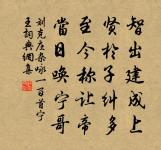 智出建成上
贤於子纠多
至今称让帝
當日唤宁哥
刘克庄杂咏一百首宁
王詞典網集